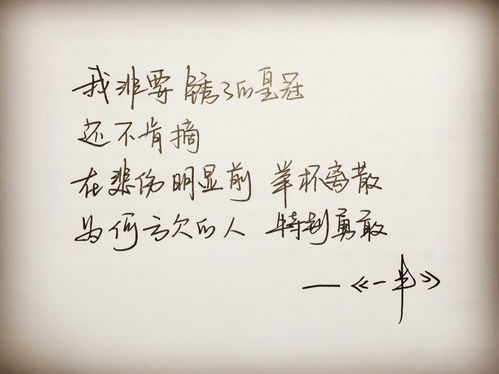 我非要 锈了的皇冠
还不肯摘
在悲伤明显前 举杯离散
为何亏欠的人 特别勇敢
—《一半》